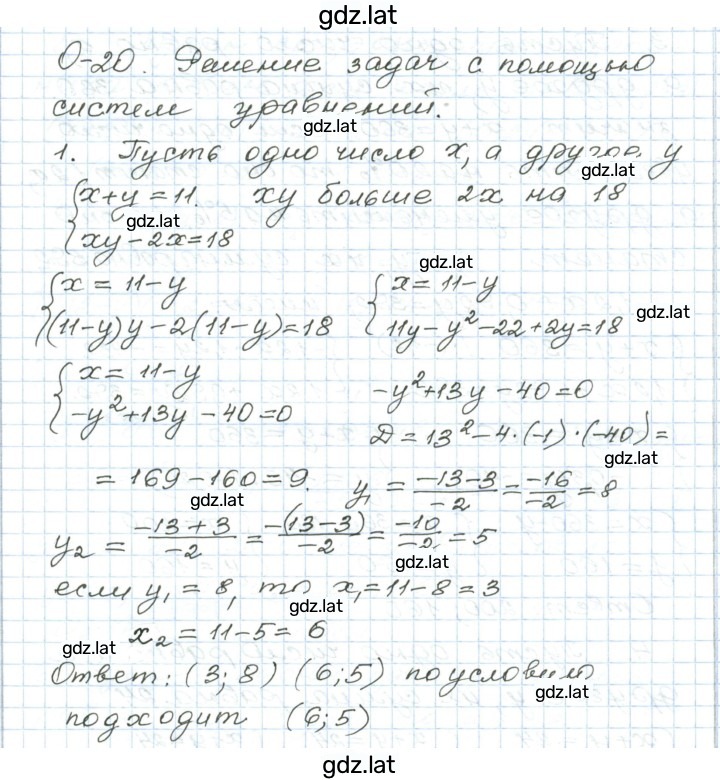 gdz.lat
О-20. Решение задач с помощью
систем уравнений.
gdz.lat
1. Пусть одно число x, а другое y
gdz.lat
{x+y=11. xy больше 2x на 18
gdz.lat
{xy-2x=18
gdz.lat
{x=11-y {x=11-y
{(11-y)y-2(11-y)=18 {11y-y²-22+2y=18
gdz.lat
{x=11-y
{-y²+13y-40=0 -y²+13y-40=0
D=13²-4·(-1)·(-40)=
gdz.lat
=169-160=9. y₁=(-13-3)/(-2)=(-16)/(-2)=8
gdz.lat
y₂=(-13+3)/(-2)=(-(13-3))/(-2)=(-10)/(-2)=5
gdz.lat
если y₁=8, то x₁=11-8=3
gdz.lat
x₂=11-5=6
gdz.lat
Ответ: (3;8) (6;5) по условию
gdz.lat
подходит (6;5)
gdz.lat